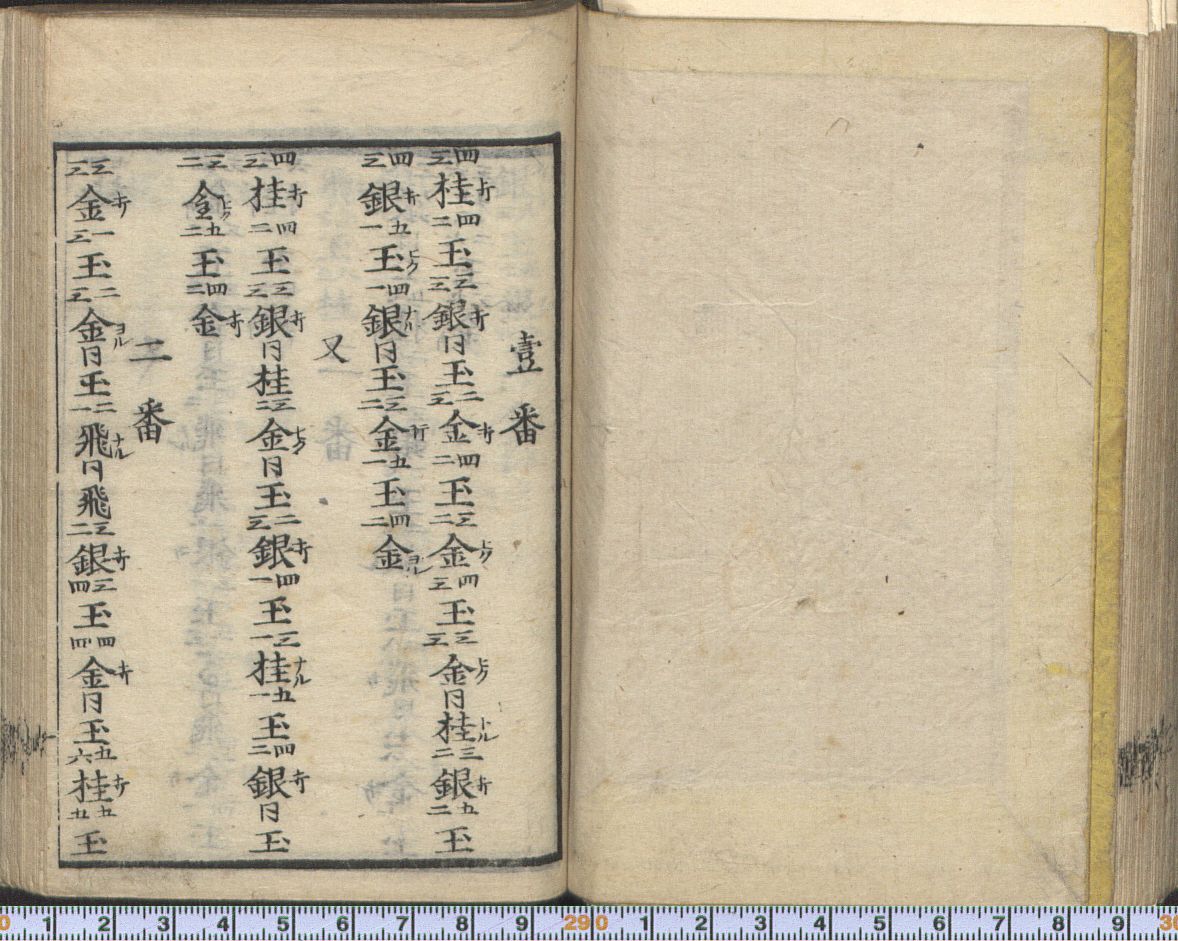 壹番
四三桂打四二玉三三銀打同玉二三金打四二玉三二金ヒク四三玉三三金ヒク同桂トル三二銀打五二玉
四三銀打五一玉ヒク四一銀ナル同玉三二金打五一玉四二金ヨル
又
四三桂打四二玉三三銀打同桂三二金ヒク同玉二三銀打四一玉三一桂ナル五一玉四二銀打同玉
三二金ヒク五二玉四二金打
二番
三三金打一三玉二三金ヨル同玉二一飛ナル同飛三二銀打三四玉四四金打同玉五六桂打五五玉